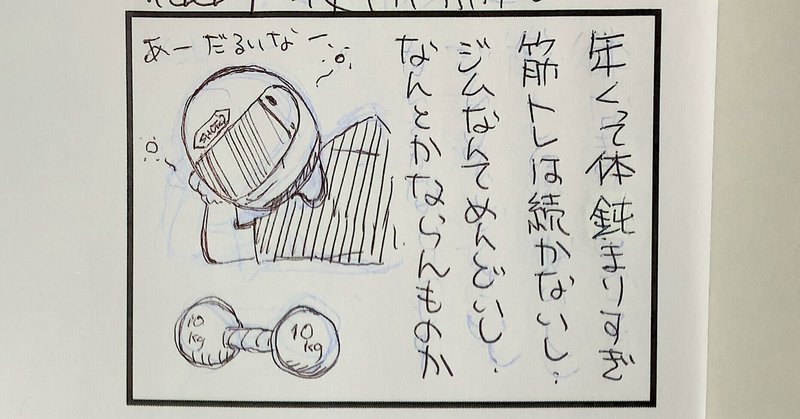 年くって体鈍まりすぎ
筋トレは続かないし
ジムなんてめんどいし
なんとかならんものか
あーだるいなー
SHOEI
10kg
10kg